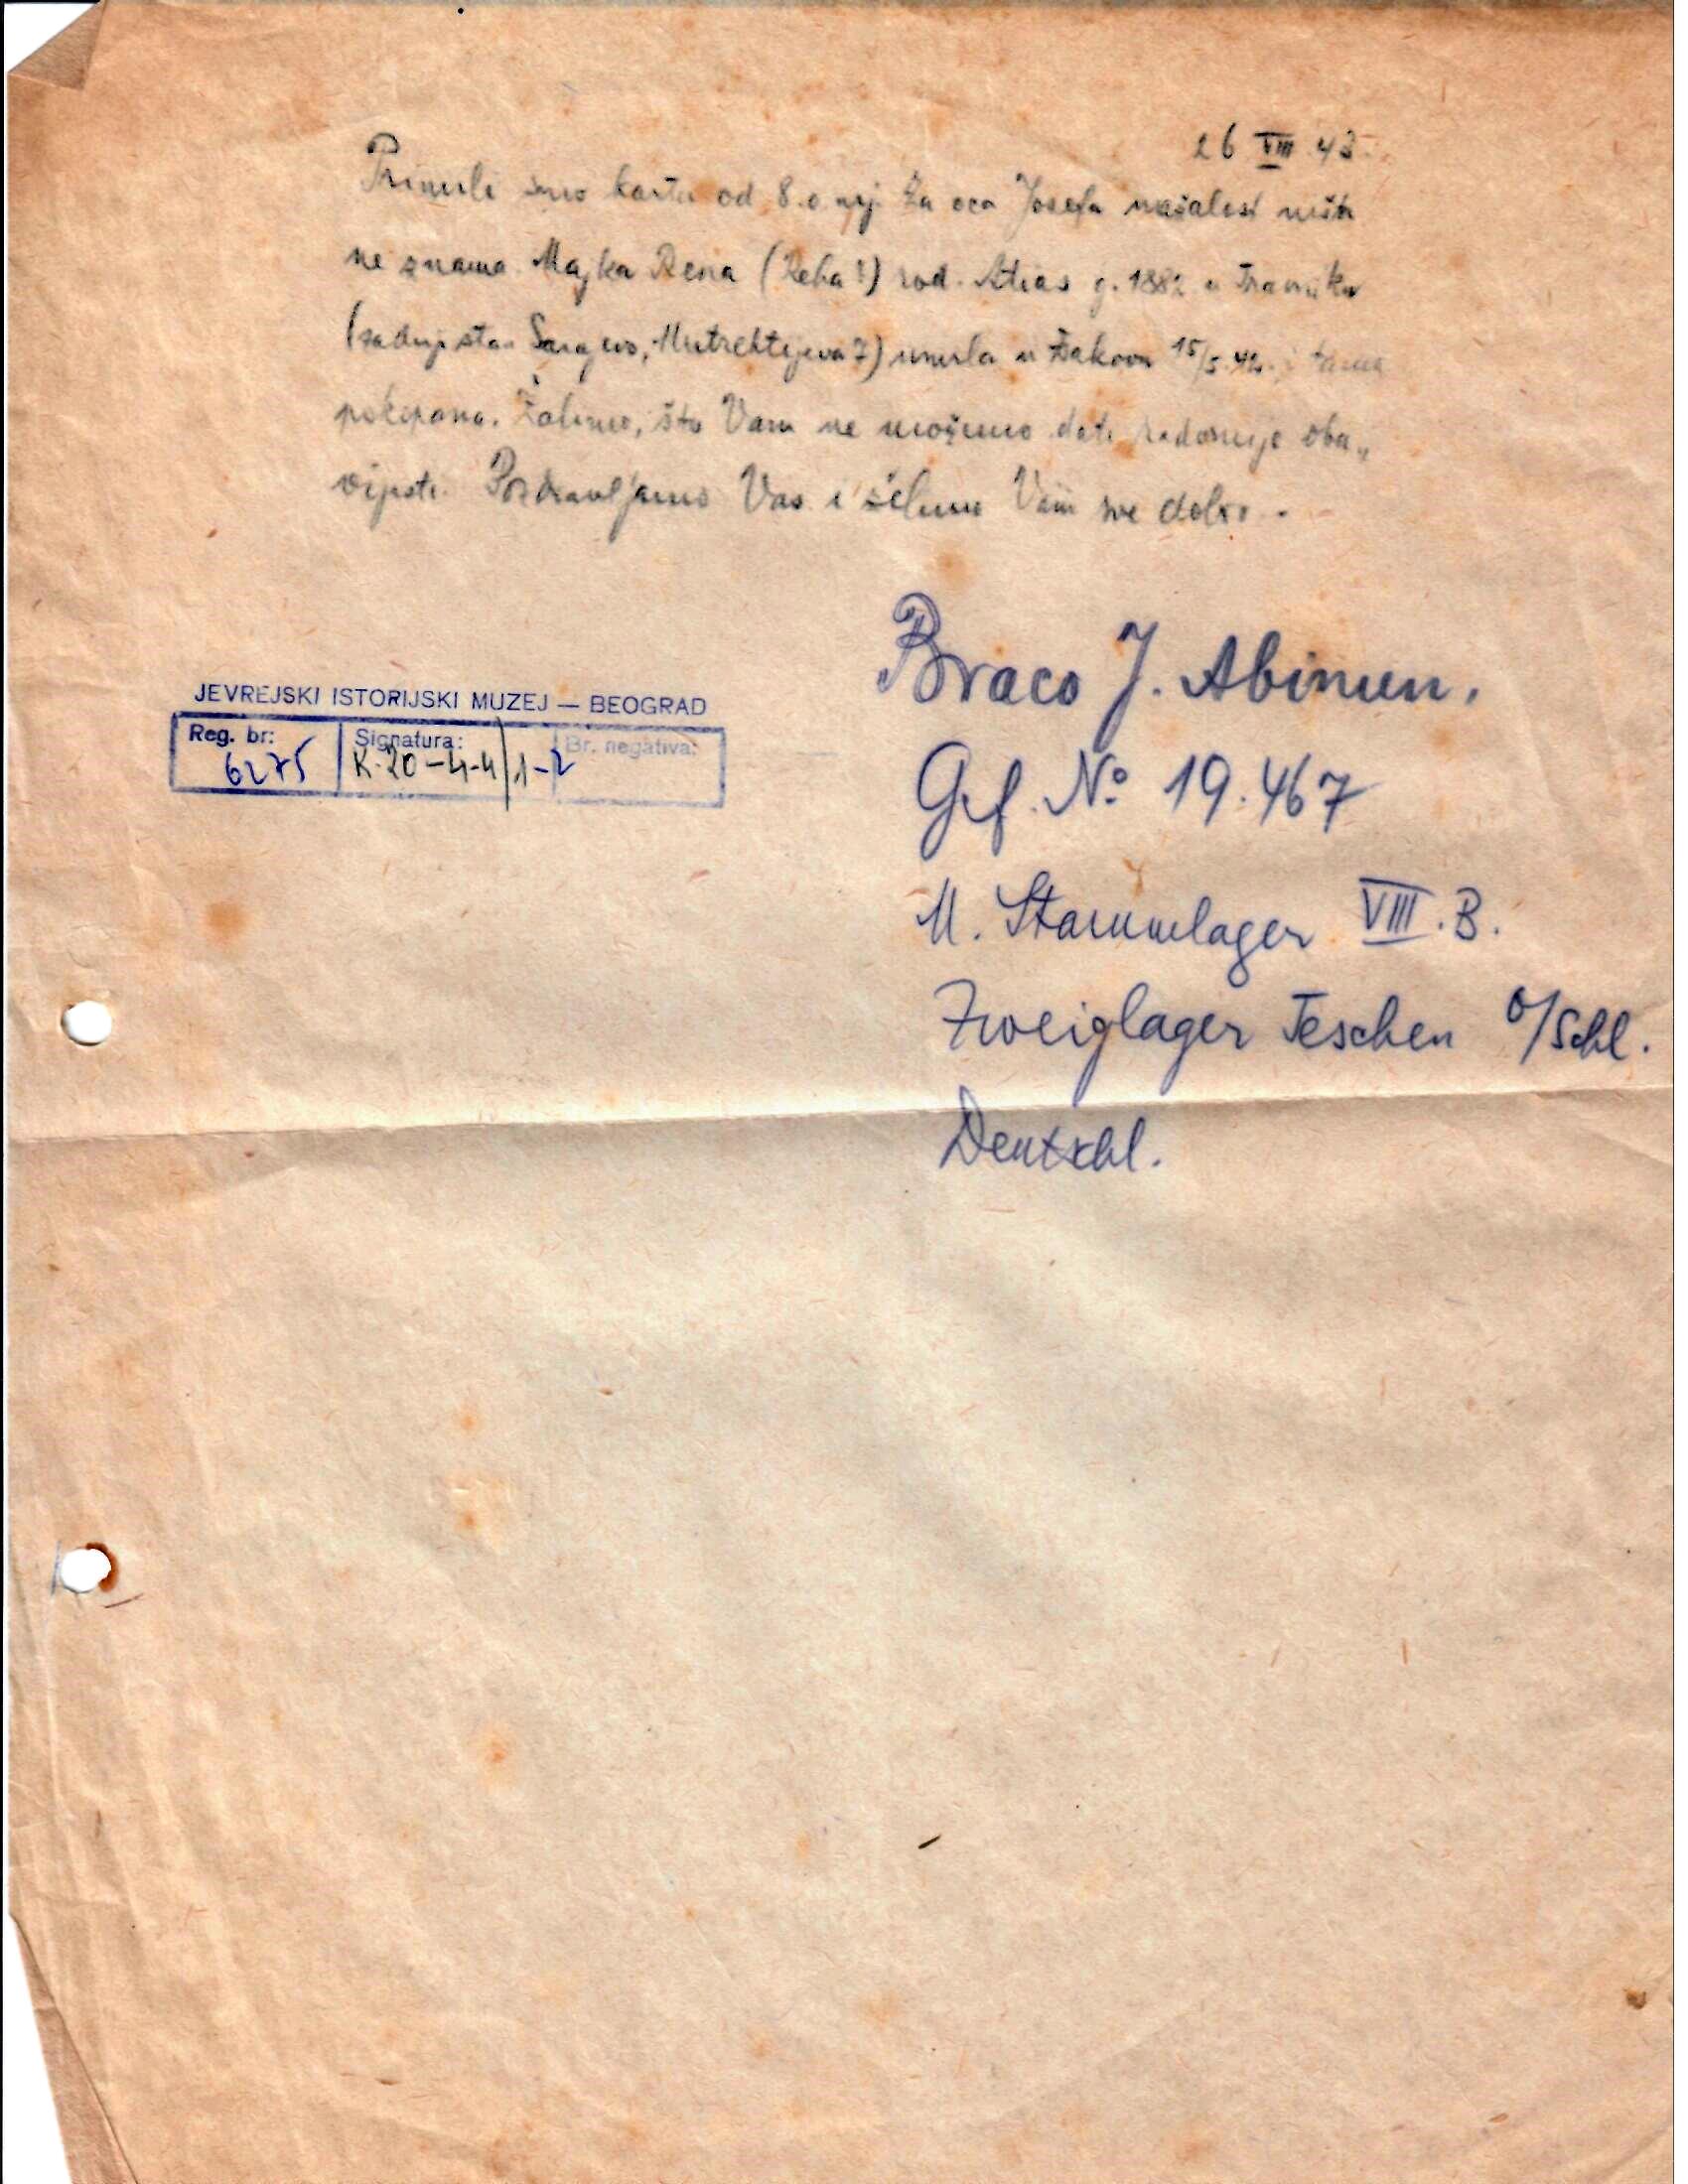 26 VIII 43.
Primili smo kartu od 8. o. mj. Za oca Josefa nažalost ništa
ne znamo. Majka Rena (Reha?) rod. Atias g. 1882 u Travniku
(zadnji stan Sarajevo, Mutevelijina 7) umrla u Đakovu 15/5.42. i tamo
pokopana. Žalimo, što Vam ne možemo dati radosnije oba„
vijesti. Pozdravljamo Vas i želimo Vam sve dobro.-
Braco J. Abinun,
Gef. No 19.467
M. Stammlager VIII.B.
Zweiglager Teschen O/Schl.
Deutschl.
JEVREJSKI ISTORIJSKI MUZEJ — BEOGRAD
Reg. br: Signatura: Br. negativa:
6275 K-20-4-4/1-2